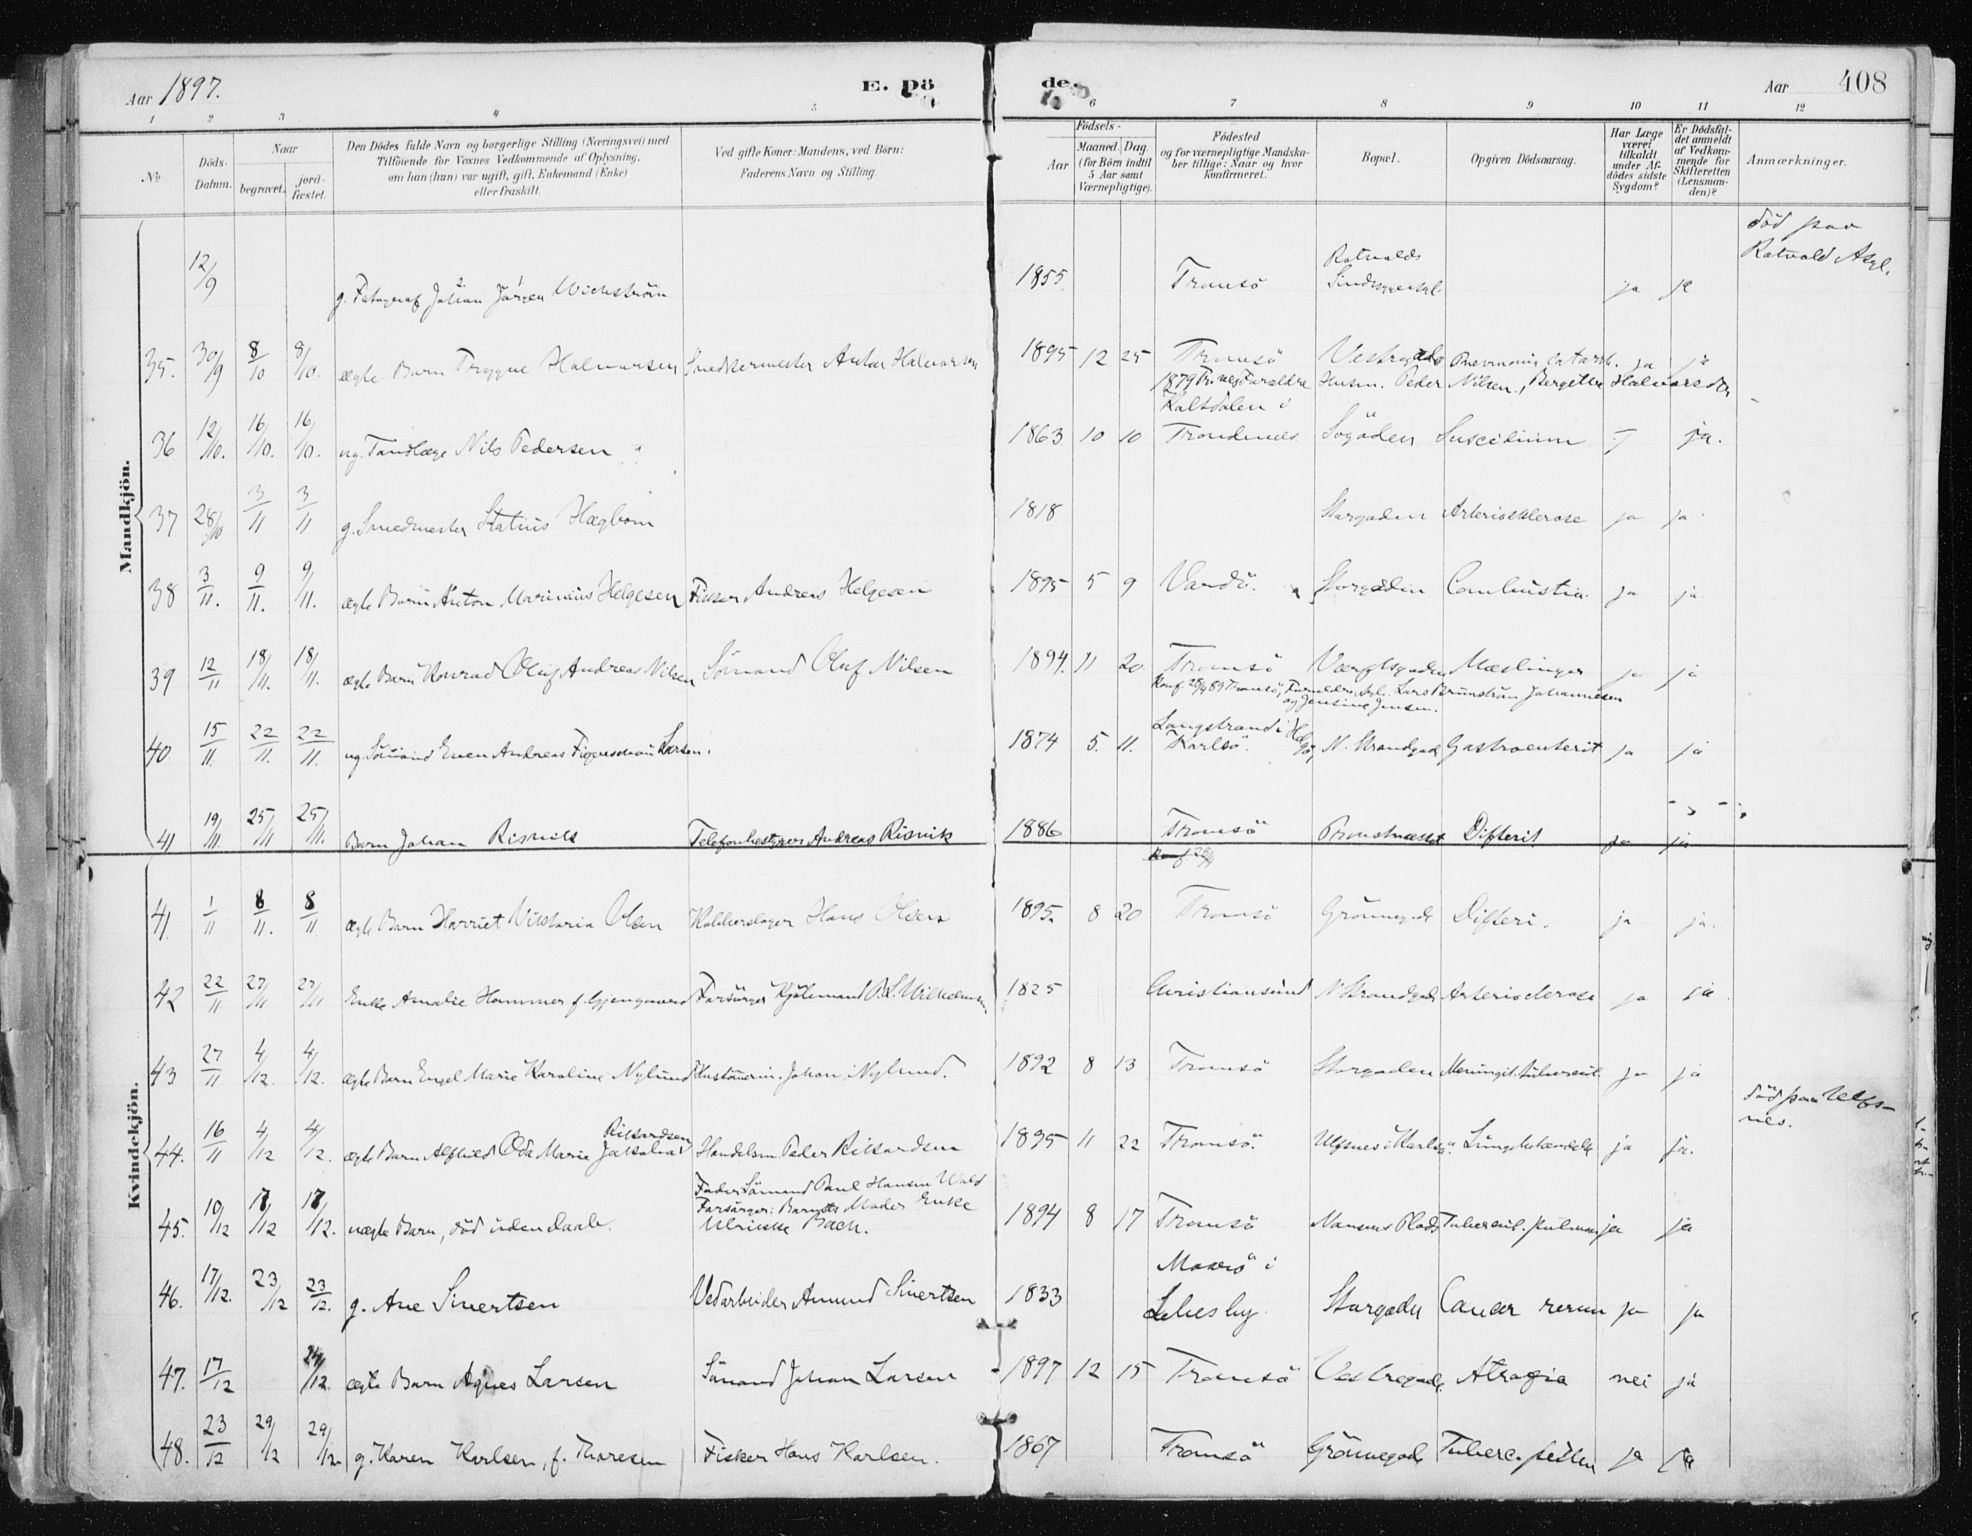 Aar 1897.
E. Dö
de.
Aar 408
1 2 3 4 5 6 7 8 9 10 11 12
No
Döds-Datum.
Naar
begravet.
jord-fæstet.
Den Dödes fulde Navn og borgerlige Stilling (Næringsvei) med
Tilföiende for Voxnes Vedkommende af Oplysning,
om han (hun) var ugift, gift, Enkemand (Enke)
eller fraskilt.
Ved gifte Koner: Mandens, ved Börn:
Faderens Navn og Stilling.
Födsels-
Aar
Maaned. Dag.
(for Börn indtil
5 Aar samt
Værnepligtige).
Födested
og for værnepligtige Mandska-
ber tillige: Naar og hvor
konfirmeret.
Bopæl.
Opgiven Dödsaarsag.
Har Læge
været
tilkaldt
under Af-
dödes sidste
Sygdom?
Er Dödsfal-
det anmeldt
af Vedkom-
mende for
Skifteretten
(Lensman-
den)?
Anmærkninger.
Mandkjön.
12/9 g. Fotograf Johan Jörgen Wickström 1855. Tromsö Rotvolds ja ja död paa Rotvold Asyl.
35. 30/9 8/10 8/10. ægte Barn Trygve Halvorsen Snedkermester Anton Halvorsen 1895 12 25 Tromsö Pnevmonia Catarrh. ja ja
Husm. Peder Nilsen, Bergitte Halvorsdtr
36 12/10. 16/10. 16/10. ug. Tandlæge Nils Pedersen 1863 10 10 Kaltdalen i Trondenes. Sögaden Suicidium ja.
37 28/10 3/11 3/11 g. Smedmester Statius Hægbom 1818 Storgaden Arteriosklerose ja ja
38 3/11. 9/11. 9/11. ægte Barn Anton Marinius Helgesen Fisker Andreas Helgesen 1895 5 9 Vardö. Storgaden Combustio. ja ja
39 12/11 18/11. 18/11. ægte Barn Konrad Oluf Andreas Nilsen Sömand Oluf Nilsen 1894. 11 20. Tromsö Værftsgaden Mæslinger ja ja
Lars Brunström Johannesen
og Jensine Jensen.
40 15/11. 22/11. 22/11. ug. Sömand Even Andreas Figenschau Larsen. 1874 5. 11. Langstrand i Helgö, Karlsö. N. Strandgade Gastroenterit ja ja
41 19/11. 25/11 25/11. Barn Johan Risvik Telefonbestyrer Andreas Risvik 1886 Tromsö Difterit ja ja
Kvindekjön.
41 1/11 8/11. 8/11 ægte Barn Harriet Viktoria Olsen Kobberslager Hans Olsen 1895. 8 20 Tromsö Grönnegade Difteri. ja ja.
42 22/11 27/11 27/11 Enke Amalie Hammer f. Forsörger Kjöbmand 1825 Christiansund N Strandgade Arteriosclerose ja ja
43 27/11 4/12. 4/12. ægte Barn Engel Marie Karoline Nylund Johan Nylund. 1892 8 13 Tromsö Storgaden Meningit. tubercul. ja ja
44. 16/11 4/12 4/12. ægte Barn Alfhild Oda Marie Jakobine Rikardsen Handelsm. Peder Rikardsen 1895 11 22 Tromsö. Ulfsnes i Karlsö. Lungebetændelse ja ja. död paa Ulfs-
nes.
45. 10/12 17/12 17/12. uægte Barn, död uden daab. Fader Sömand Paul Hansen Wold
Forsörger: Barnets Moder Enke
Ulrikke Bach. 1894 8 17 Tromsö Nansens Plads Tubercul. pulmon ja ja
46. 17/12. 23/12 23/12. g. Ane Sivertsen Vedarbeider Amund Sivertsen 1833 Maasö i Lebesby. Storgaden Cancer renum ja ja
47. 17/12 24/12. ægte Barn Agnes Larsen Sömand Johan Larsen 1897 12 15 Tromsö Vestregade Atrofia nei ja
48. 23/12 29/12 29/12. g. Karen Karlsen, f. Thoresen Fisker Hans Karlsen. 1867 Tromsö Grönnegade ja ja